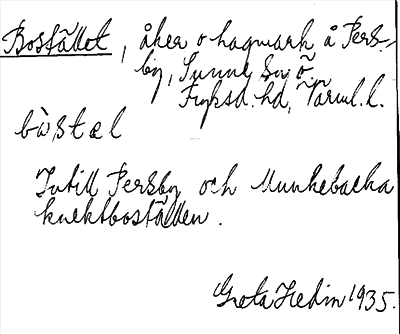 Bostället, åker o hagmark å Pers-
by, Sunne sn ö.
Fryksd. hd, Värml. l.
bòstæl
Intill Persby och Munkebacka
knektboställen.
Greta Hedin 1935.